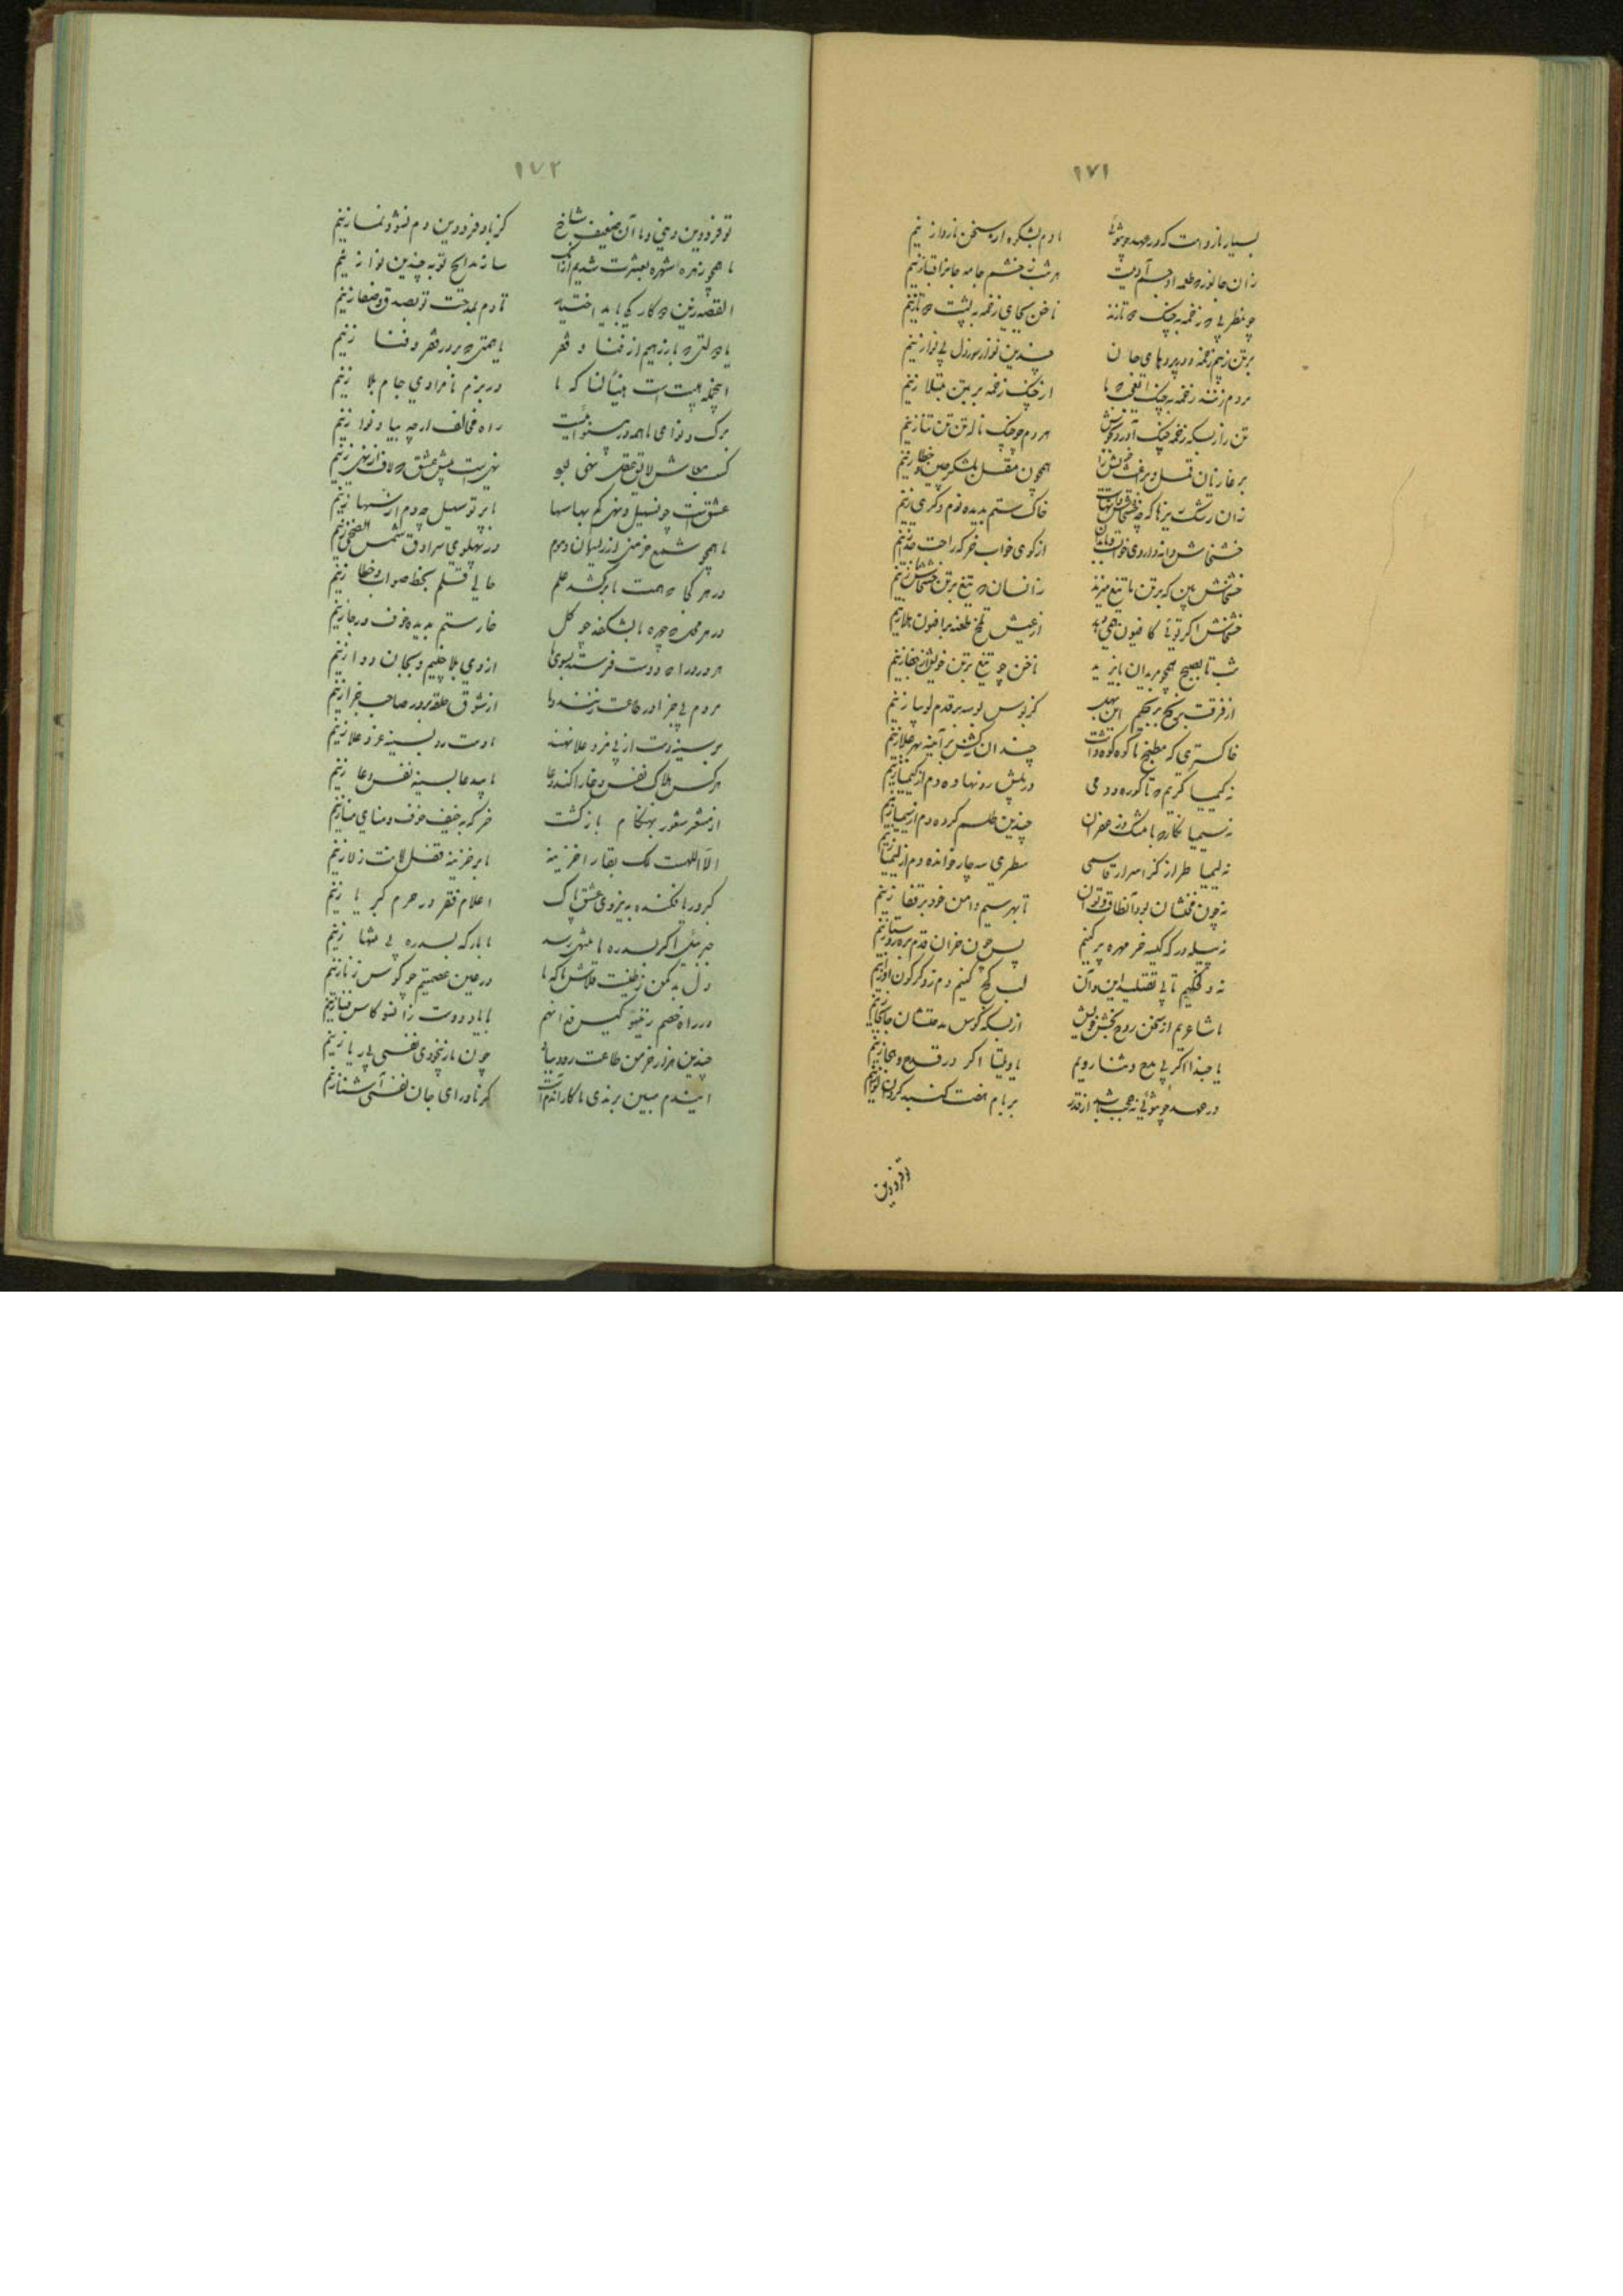 ١٧١
بسیار نارواست که در عهد چون توئی ما دم بشکوه از سخن ناروا زنیم
زان جانور که طعمه او جسم آدمیست هر شب ز خشم جامه جانرا قبا زنیم
چو مطربی که زخمه به چنگ دو تا زند ناخن بجای زخمه به پشت دو تا زنیم
بر تن زنیم زخمه و در پردهای جان چندین نوا ز سوز دل بی نوا زنیم
مردم زنند زخمه به چنگ از چنگ زخمه بر تن مبتلا زنیم
تن را ز بسکه زخمه چنگ آورد خروش هر دم چو چنگ ناله تن تن تنا زنیم
بر غازیان همچون مقبل بلشکر چین و خطا زنیم
زان رشک ریزها که چه خشخاش خاک ستم بدیده نوم و کری زنیم
خشخاش دانه داروی خوابست از کوی خواب خرگه راحت جدا زنیم
خشخاش بین که بر تن ما تیغ میزند زانسان که تیغ بر تن خشخاش ما زنیم
خشخاش اگر توئی کافیون همی دهد از عیش تلخ طعنه بر افیون هلا زنیم
شب تا بصبح همچو مریدان بایزید ناخن چو تیغ بر تن خویش از جفا زنیم
از فرقت برنج بر نجیم این سبب کز بوس بوسه بر قدم لوبیا زنیم
خاکستری که مطبخ ما کوه کوه داشت چندان کشش بر آینه مهر جلا زنیم
نه کیمیا گریم که تا کوره و دمی در پیش رو نهاده دم از کیمیا زنیم
نه سیمیا نگار که با مشک و زعفران چندین طلسم کرده دم از سیمیا زنیم
نه لیمیا طراز کز اسرار قاسمی سطری سه چار خوانده دم از لیمیا زنیم
نه چون مخنثان تا بهر سیم دامن خود بر قفا زنیم
نه پیله‌ور که کیسه ز خر مهره پر کنیم پس چون خران قدم بره روستا زنیم
نه دلقکیم تا پی تقلید این و آن لب کج کنیم و دم ز دگرگون ادا زنیم
ما شاعریم از سخن روح بخش خویش از بسکه کوس مدحتشان جابجا زنیم
یا حبذا اگر پی مدح و ثنا رویم یا ویلتا اگر در قدح و هجا زنیم
در عهد چون توئی نه عجب باشد ار ز قدر بر بام هفت گنبد گردون لوا زنیم
تو فرودین
١٧٢
تو فرودین و می و ما آن ضعیف شاخ کز باد فرودین دم نشو و نما زنیم
ما همچو زهره شهره بعشرت شدیم از آنک ساز مدایح تو به چندین نوا زنیم
القصه زین دو کار یکی باید اختیار تا دم بمدحت تو بصدق و صفا زنیم
یا دولتی که باز رهیم از غنا و فقر یا همتی که بر در فقر و فنا زنیم
اینجمله هست است هنیأ لنا که ما در بزم نامرادی جام بلا زنیم
برگ و نوای ما همه در بینوائیست راه مخالف از چه بیاد نوا زنیم
کسب معاش لایق عقل بهی بود نهی است پیش عشق که لاف از نهی زنیم
عشقست چون سهیل و نهی کم بها سها با پرتو سهیل چه دم از سها زنیم
ما همچو شمع خرمنی از ریسمان و موم در پهلوی سرادق شمس الضحی زنیم
در هر کجا که همت ما برکشد علم حالی قلم بخط صواب و خطا زنیم
در هر محل که چهره ما بشکفد چو گل خار ستم بدیده خوف و رجا زنیم
هر درد را که دوست فرستد بسوی ما از وی بلا چنیم و بجان دوا زنیم
مردم پی جزا در طاعت زنند و ما از شوق حلقه بر در صاحب جزا زنیم
بر سینه دست از پی عز و علا نهند ما دست رد بسینه عز و علا زنیم
هر کس هلاک نفس دغا را کند دعا ما بی دعا بسینه نفس دعا زنیم
از مشعر شعور بهنگام بازگشت خرگه به خیف خوف و منای منا زنیم
الا اللهست ملک بقا را خزینه ما بر خزینه قفل لا ز لا زنیم
گر در ما فکنده به نیروی عشق پاک اعلام فقر در حرم کبریا زنیم
جبریل اگر بسدره ما منتهی رسد ما بارگه بسدره بی منتها زنیم
دل بد مکن ز طینت قلاش ما که ما در عین عصمتیم چو کوس زنا زنیم
در راه خصم با یاد دوست زانو کاس فنا زنیم
چندین هزار خرمن طاعت رود بباد چون ما ز بیخودی نفسی بی ریا زنیم
ایندم مبین برندی ما کار آندم است کز ماورای جان نفسی آشنا زنیم